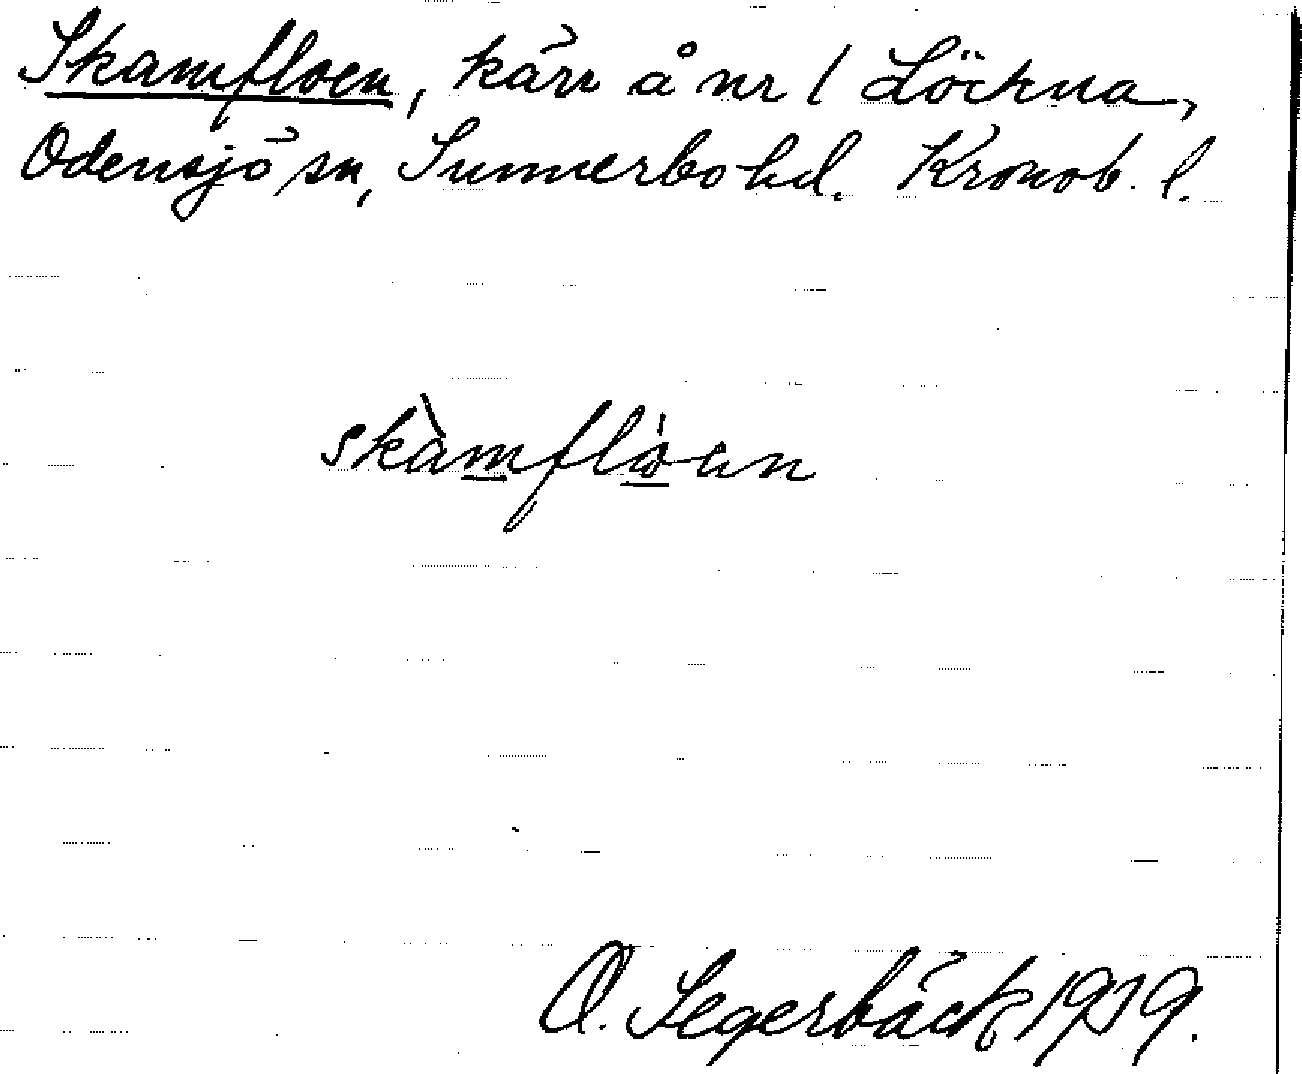 Skamfloen, kärr å nr 1 Löckna,
Odensjö sn, Sunnerbo hd. Kronob. l.
skàmflòan
O. Segerbäck 1919.